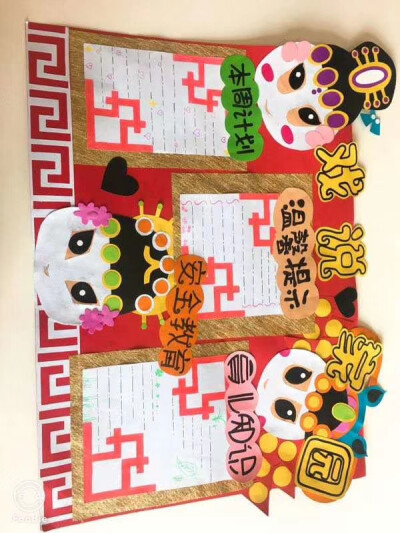 戏说家园
本周计划
温馨提示
安全教育
育儿知识